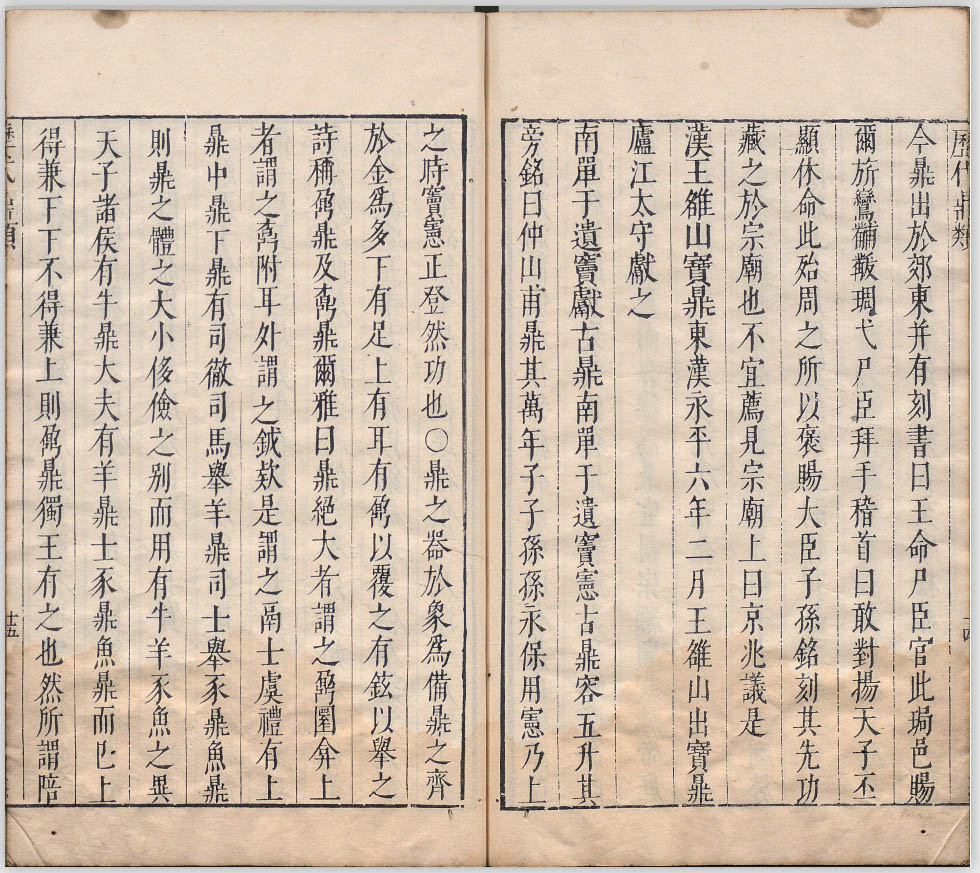 歷代鼎類
今鼎出於郊東并有刻書曰王命尸臣官此珣邑賜
爾旂鸞黼黻琱戈尸臣拜手稽首曰敢對揚天子丕
顯休命此殆周之所以褒賜大臣子孫銘刻其先功
藏之於宗廟也不宜薦見宗廟上曰京兆議是
漢王雒山寶鼎東漢永平六年二月王雒山出寶鼎
廬江太守獻之
南單于遺竇獻古鼎南單于遺竇憲古鼎容五升其
旁銘曰仲山甫鼎其萬年子子孫孫永保用憲乃上
之時竇憲正登然功也〇鼎之器於象爲備鼎之齊
於金爲多下有足上有耳有鼏以覆之有鉉以舉之
詩稱鼐鼎及鼒鼎爾雅曰鼎絕大者謂之鼐圜弇上
者謂之鼒附耳外謂之釴款足謂之鬲士虞禮有上
鼎中鼎下鼎有司徹司馬舉羊鼎司士舉豕鼎魚鼎
則鼎之體之大小侈儉之别而用有牛羊豕魚之異
天子諸侯有牛鼎大夫有羊鼎士豕鼎魚鼎而已上
得兼下下不得兼上則鼐鼎獨王有之也然所謂陪
十五